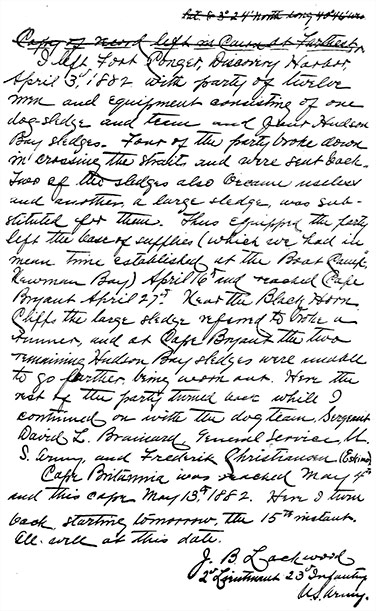 Lat. 83° 24' North Long 40° 46' W.
Copy of record left in Cairn at Farthest.
I left Fort Conger, Discovery Harbor
April 3ᵈ, 1882 with party of twelve
men and equipment consisting of one
dog sledge and team and four Hudson
Bay sledges. Four of the party broke down
in crossing the strait, and were sent back.
Two of the sledges also became useless
and another, a large sledge, was sub-
stituted for them. Thus equipped the party
left the base of supplies (which we had in
mean time established at the Boat Camp,
Newman Bay) April 16ᵗʰ and reached Cape
Bryant April 27ᵗʰ. Near the Black Horn
Cliffs the large sledge refered to broke a
runner, and at Cape Bryant the two
remaining Hudson Bay sledges were unable
to go further, being worn out. Here the
rest of the party turned back while I
continued on with the dog team, Sergeant
David L. Brainard, General Service, U.
S. Army, and Frederik Christiansen (Eskimo)
Cape Britannia was reached May 4ᵗʰ
and this cape May 13ᵗʰ 1882. Here I turn
back, starting tomorrow, the 15ᵗʰ instant.
All well at this date.
J. B. Lockwood
2ᵈ Lieutenant 23ᵈ Infantry
U.S. Army.